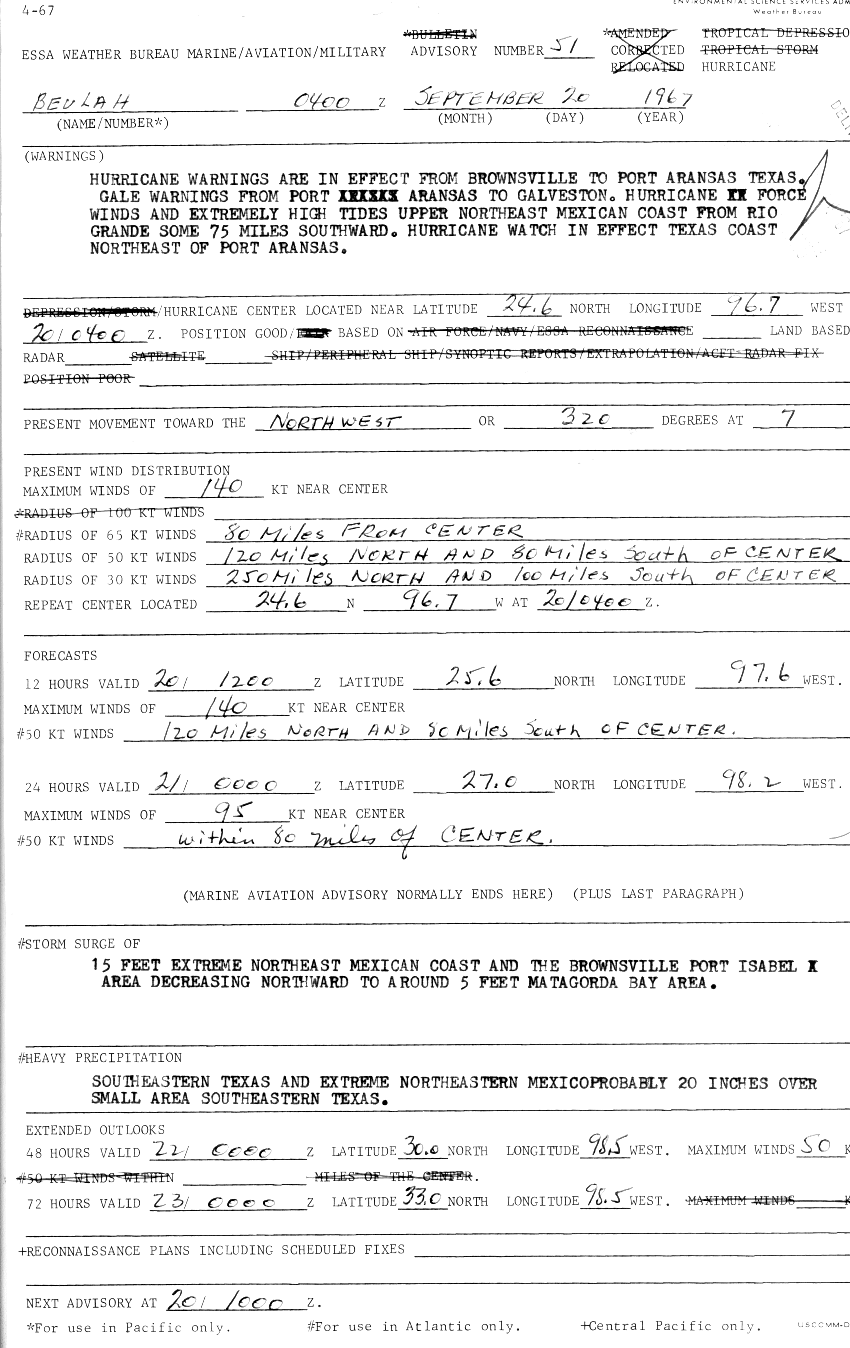 4-67
ENVIRONMENTAL SCIENCE SERVICES ADM
Weather Bureau
ESSA WEATHER BUREAU MARINE/AVIATION/MILITARY *BULLETIN ADVISORY NUMBER 51 *AMENDED CORRECTED RELOCATED TROPICAL DEPRESSIO TROPICAL STORM HURRICANE
BEULAH 0400 Z SEPTEMBER 20 1967
(NAME/NUMBER*) (MONTH) (DAY) (YEAR)
(WARNINGS)
HURRICANE WARNINGS ARE IN EFFECT FROM BROWNSVILLE TO PORT ARANSAS TEXAS.
GALE WARNINGS FROM PORT XXXXXX ARANSAS TO GALVESTON. HURRICANE XX FORCE
WINDS AND EXTREMELY HIGH TIDES UPPER NORTHEAST MEXICAN COAST FROM RIO
GRANDE SOME 75 MILES SOUTHWARD. HURRICANE WATCH IN EFFECT TEXAS COAST
NORTHEAST OF PORT ARANSAS.
DEPRESSION/STORM/HURRICANE CENTER LOCATED NEAR LATITUDE 24.6 NORTH LONGITUDE 96.7 WEST
20/0400 Z. POSITION GOOD/ BASED ON AIR FORCE/NAVY/ESSA RECONNAISSANCE LAND BASED
RADAR SATELLITE SHIP/PERIPHERAL SHIP/SYNOPTIC REPORTS/EXTRAPOLATION/ACFT RADAR FIX
POSITION POOR
PRESENT MOVEMENT TOWARD THE NORTHWEST OR 320 DEGREES AT 7
PRESENT WIND DISTRIBUTION
MAXIMUM WINDS OF 140 KT NEAR CENTER
*RADIUS OF 100 KT WINDS
#RADIUS OF 65 KT WINDS 80 Miles FROM CENTER
RADIUS OF 50 KT WINDS 120 Miles NORTH AND 80 Miles South OF CENTER
RADIUS OF 30 KT WINDS 250 Miles NORTH AND 100 Miles South OF CENTER
REPEAT CENTER LOCATED 24.6 N 96.7 W AT 20/0400 Z.
FORECASTS
12 HOURS VALID 20/ 1200 Z LATITUDE 25.6 NORTH LONGITUDE 97.6 WEST.
MAXIMUM WINDS OF 140 KT NEAR CENTER
#50 KT WINDS 120 Miles NORTH AND 80 Miles South OF CENTER.
24 HOURS VALID 21/ 0000 Z LATITUDE 27.0 NORTH LONGITUDE 98.2 WEST.
MAXIMUM WINDS OF 95 KT NEAR CENTER
#50 KT WINDS within 80 miles of CENTER.
(MARINE AVIATION ADVISORY NORMALLY ENDS HERE) (PLUS LAST PARAGRAPH)
#STORM SURGE OF
15 FEET EXTREME NORTHEAST MEXICAN COAST AND THE BROWNSVILLE PORT ISABEL X
AREA DECREASING NORTHWARD TO AROUND 5 FEET MATAGORDA BAY AREA.
#HEAVY PRECIPITATION
SOUTHEASTERN TEXAS AND EXTREME NORTHEASTERN MEXICOPROBABLY 20 INCHES OVER
SMALL AREA SOUTHEASTERN TEXAS.
EXTENDED OUTLOOKS
48 HOURS VALID 22/ 0000 Z LATITUDE 30.0 NORTH LONGITUDE 98.5 WEST. MAXIMUM WINDS 50 K
#50 KT WINDS WITHIN MILES OF THE CENTER.
72 HOURS VALID 23/ 0000 Z LATITUDE 33.0 NORTH LONGITUDE 98.5 WEST. MAXIMUM WINDS K
+RECONNAISSANCE PLANS INCLUDING SCHEDULED FIXES
NEXT ADVISORY AT 20/ 1000 Z.
*For use in Pacific only. #For use in Atlantic only. +Central Pacific only. USCOMM-D